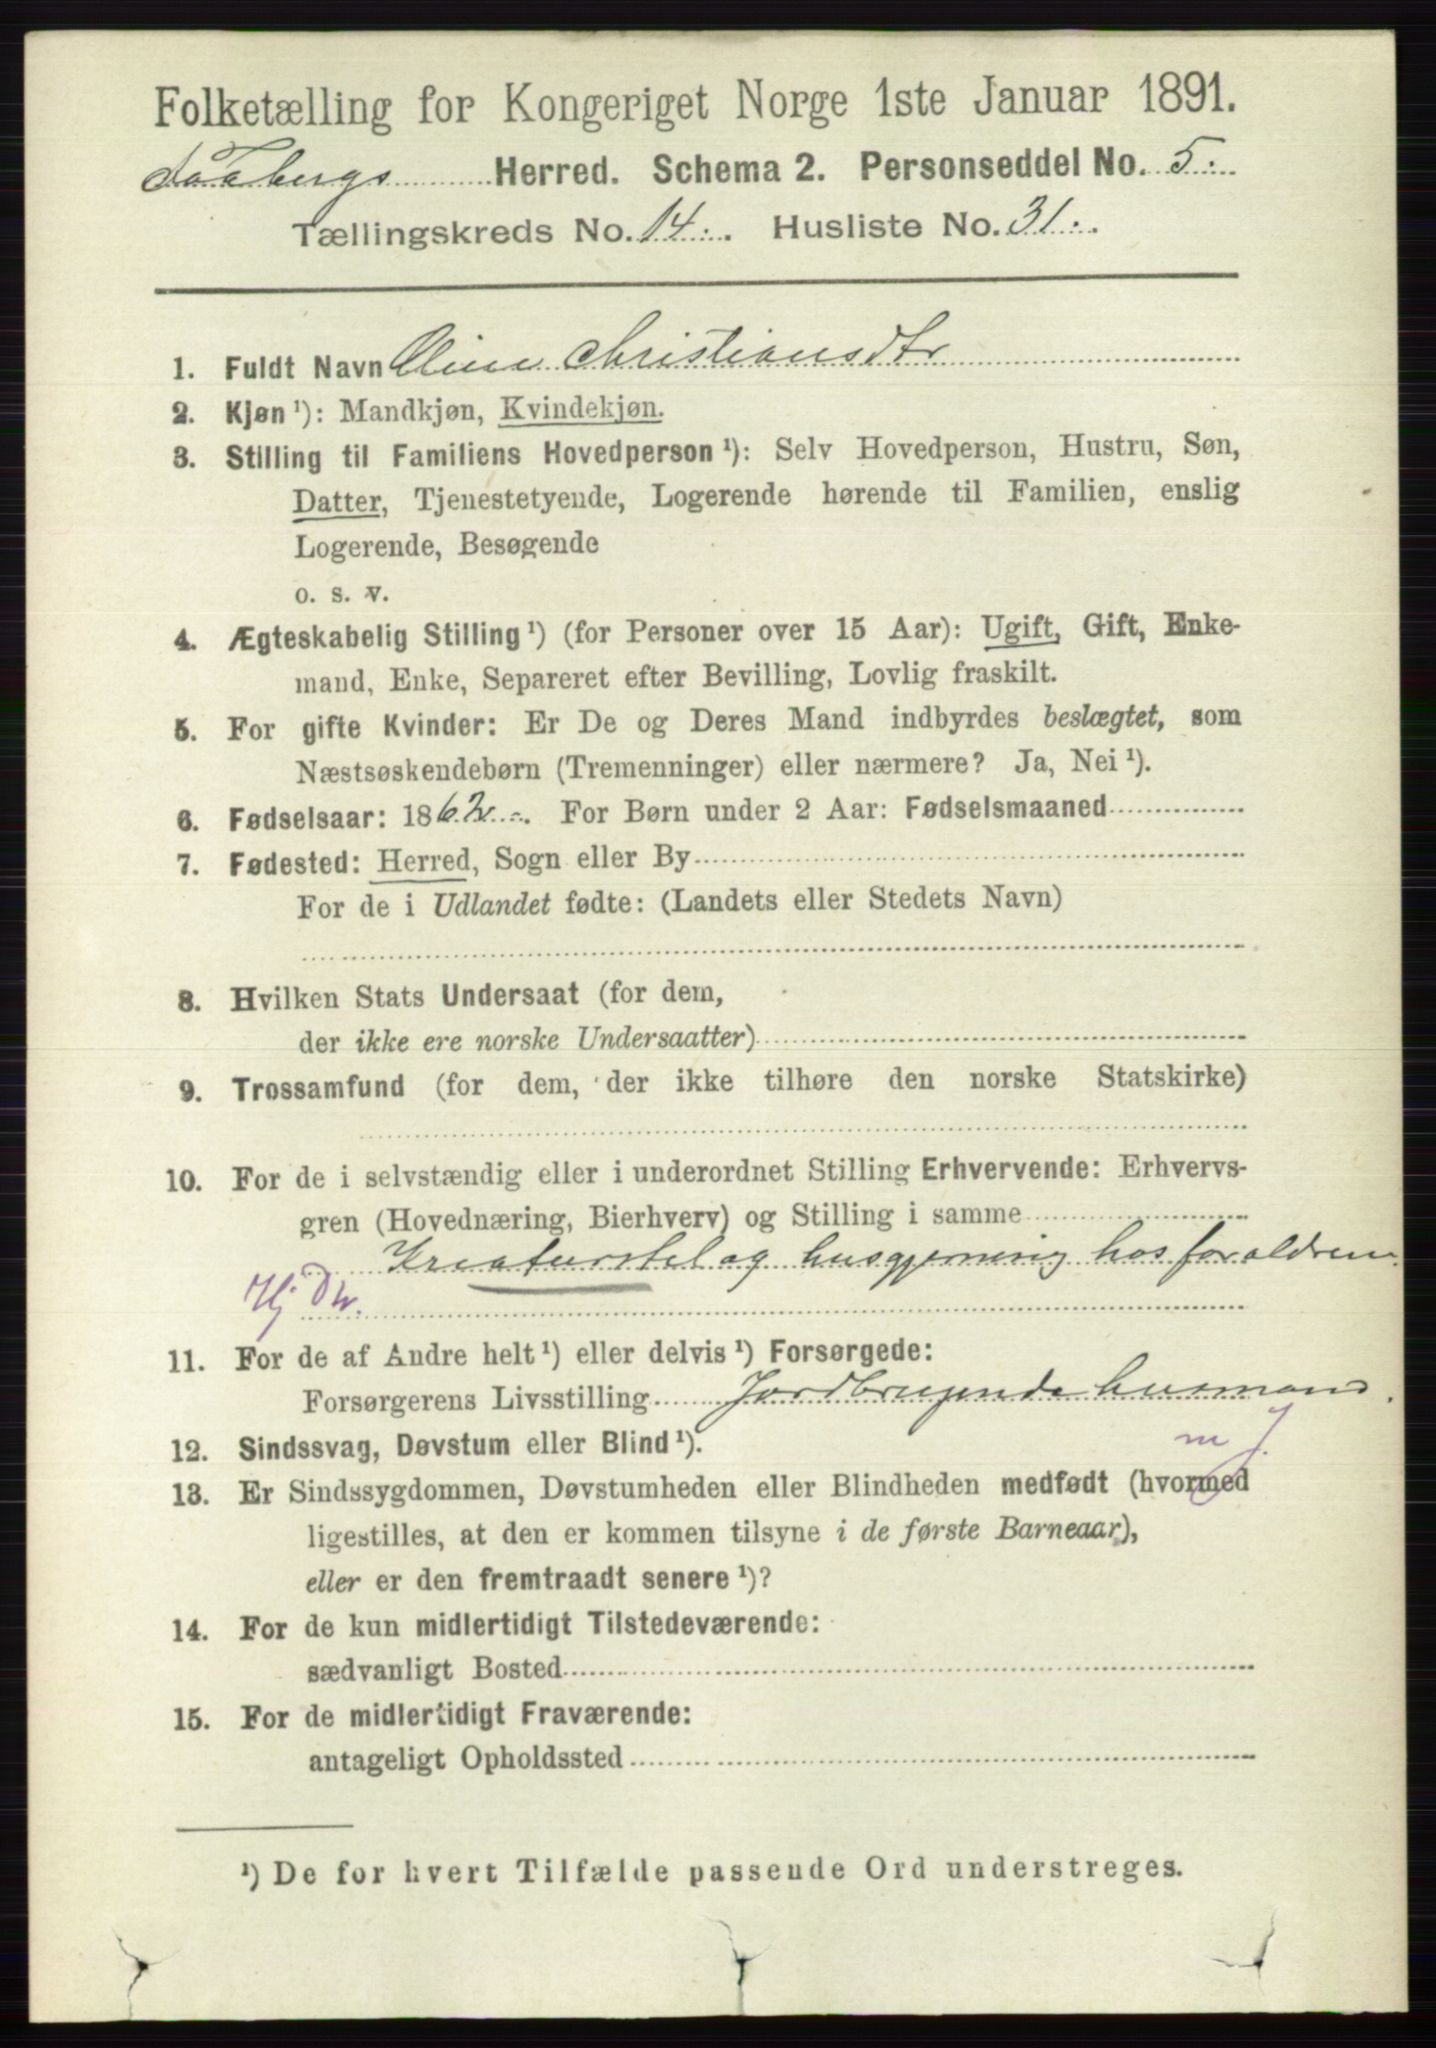 Folketælling for Kongeriget Norge 1ste Januar 1891.
Faabergs Herred. Schema 2. Personseddel No. 5.
Tællingskreds No. 14. Husliste No. 31.
1. Fuldt Navn Oline Christiansdtr
2. Kjøn ¹): Mandkjøn, Kvindekjøn.
3. Stilling til Familiens Hovedperson ¹): Selv Hovedperson, Hustru, Søn,
Datter, Tjenestetyende, Logerende hørende til Familien, enslig
Logerende, Besøgende
o. s. v.
4. Ægteskabelig Stilling ¹) (for Personer over 15 Aar): Ugift, Gift, Enke-
mand, Enke, Separeret efter Bevilling, Lovlig fraskilt.
5. For gifte Kvinder: Er De og Deres Mand indbyrdes beslægtet, som
Næstsøskendebørn (Tremenninger) eller nærmere? Ja, Nei ¹).
6. Fødselsaar: 1862. For Børn under 2 Aar: Fødselsmaaned
7. Fødested: Herred, Sogn eller By
For de i Udlandet fødte: (Landets eller Stedets Navn)
8. Hvilken Stats Undersaat (for dem,
der ikke ere norske Undersaatter)
9. Trossamfund (for dem, der ikke tilhøre den norske Statskirke)
10. For de i selvstændig eller i underordnet Stilling Erhvervende: Erhvervs-
gren (Hovednæring, Bierhverv) og Stilling i samme
Kreaturstel og husgjerning hos forældrene.
Hj Dtr.
11. For de af Andre helt ¹) eller delvis ¹) Forsørgede:
Forsørgerens Livsstilling Jordbrugende husmand.
m J.
12. Sindssvag, Døvstum eller Blind ¹).
13. Er Sindssygdommen, Døvstumheden eller Blindheden medfødt (hvormed
ligestilles, at den er kommen tilsyne i de første Barneaar),
eller er den fremtraadt senere ¹)?
14. For de kun midlertidigt Tilstedeværende:
sædvanligt Bosted
15. For de midlertidigt Fraværende:
antageligt Opholdssted
¹) De for hvert Tilfælde passende Ord understreges.